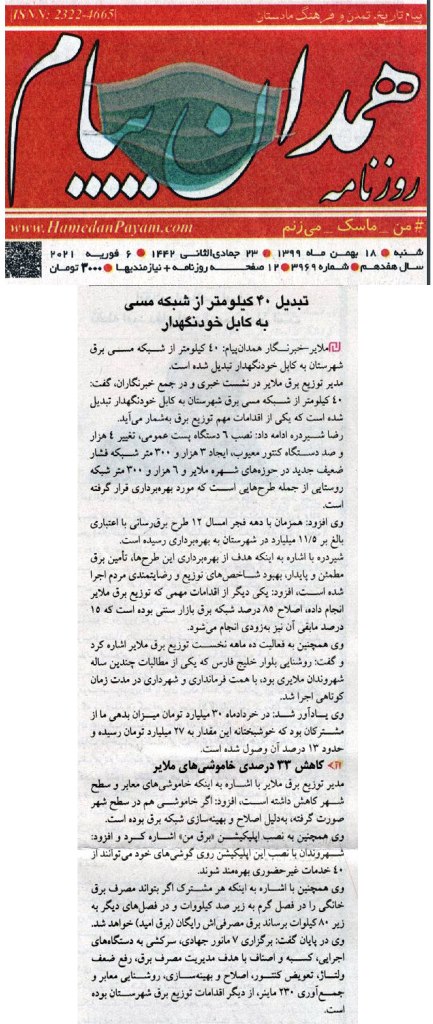 ISNN: 2322-4665
پیام تاریخ، تمدن و فرهنگ مادستان
همدان پیام
روزنامه
www.HamedanPayam.com
#من _ ماسک _ می‌زنم
شنبه ● ۱۸ بهمن ماه ۱۳۹۹ ● ۲۳ جمادی‌الثانی ۱۴۴۲ ● ۶ فوریه ۲۰۲۱
سال هفدهم ● شماره ۳۹۶۹ ● ۱۲ صفحه روزنامه + نیازمندیها ● ۳۰۰۰ تومان
تبدیل ۴۰ کیلومتر از شبکه مسی
به کابل خودنگهدار
ملایر-خبرنگار همدان‌پیام: ۴۰ کیلومتر از شبکه مسی برق
شهرستان به کابل خودنگهدار تبدیل شده است.
مدیر توزیع برق ملایر در نشست خبری و در جمع خبرنگاران، گفت:
۴۰ کیلومتر از شبکه مسی برق شهرستان به کابل خودنگهدار تبدیل
شده است که یکی از اقدامات مهم توزیع برق به‌شمار می‌آید.
رضا شیردره ادامه داد: نصب ۶ دستگاه پست عمومی، تغییر ۴ هزار
و صد دستگاه کنتور معیوب، ایجاد ۳ هزار و ۳۰۰ متر شبکه فشار
ضعیف جدید در حوزه‌های شهره ملایر و ۶ هزار و ۳۰۰ متر شبکه
روستایی از جمله طرح‌هایی است که مورد بهره‌برداری قرار گرفته
است.
وی افزود: همزمان با دهه فجر امسال ۱۲ طرح برق‌رسانی با اعتباری
بالغ بر ۱۱/۵ میلیارد در شهرستان به بهره‌برداری رسیده است.
شیردره با اشاره به اینکه هدف از بهره‌برداری این طرح‌ها، تأمین برق
مطمئن و پایدار، بهبود شاخص‌های توزیع و رضایتمندی مردم اجرا
شده است، افزود: یکی دیگر از اقدامات مهمی که توزیع برق ملایر
انجام داده، اصلاح ۸۵ درصد شبکه برق بازار سنتی بوده است که ۱۵
درصد مابقی آن نیز به‌زودی انجام می‌شود.
وی همچنین به فعالیت ده ماهه نخست توزیع برق ملایر اشاره کرد
و گفت: روشنایی بلوار خلیج فارس که یکی از مطالبات چندین ساله
شهروندان ملایری بود، با همت فرمانداری و شهرداری در مدت زمان
کوتاهی اجرا شد.
وی یادآور شد: در خردادماه ۳۰ میلیارد تومان میزان بدهی ما از
مشترکان بود که خوشبختانه این مقدار به ۲۷ میلیارد تومان رسیده و
حدود ۱۳ درصد آن وصول شده است.
کاهش ۳۳ درصدی خاموشی‌های ملایر
مدیر توزیع برق ملایر با اشاره به اینکه خاموشی‌های معابر و سطح
شهر کاهش داشته است، افزود: اگر خاموشی هم در سطح شهر
صورت گرفته، به‌دلیل اصلاح و بهینه‌سازی شبکه برق بوده است.
وی همچنین به نصب اپلیکیشن «برق من» اشاره کرد و افزود:
شهروندان با نصب این اپلیکیشن روی گوشی‌های خود می‌توانند از
۴۰ خدمات غیرحضوری بهره‌مند شوند.
وی همچنین با اشاره به اینکه هر مشترک اگر بتواند مصرف برق
خانگی را در فصل گرم به زیر صد کیلووات و در فصل‌های دیگر به
زیر ۸۰ کیلوات برساند برق مصرفی‌اش رایگان (برق امید) خواهد شد.
وی در پایان گفت: برگزاری ۷ مانور جهادی، سرکشی به دستگاه‌های
اجرایی، کسبه و اصناف با هدف مدیریت مصرف برق، رفع ضعف
ولتاژ، تعویض کنتور، اصلاح و بهینه‌سازی، روشنایی معابر و
جمع‌آوری ۲۳۰ ماینر، از دیگر اقدامات توزیع برق شهرستان بوده
است.